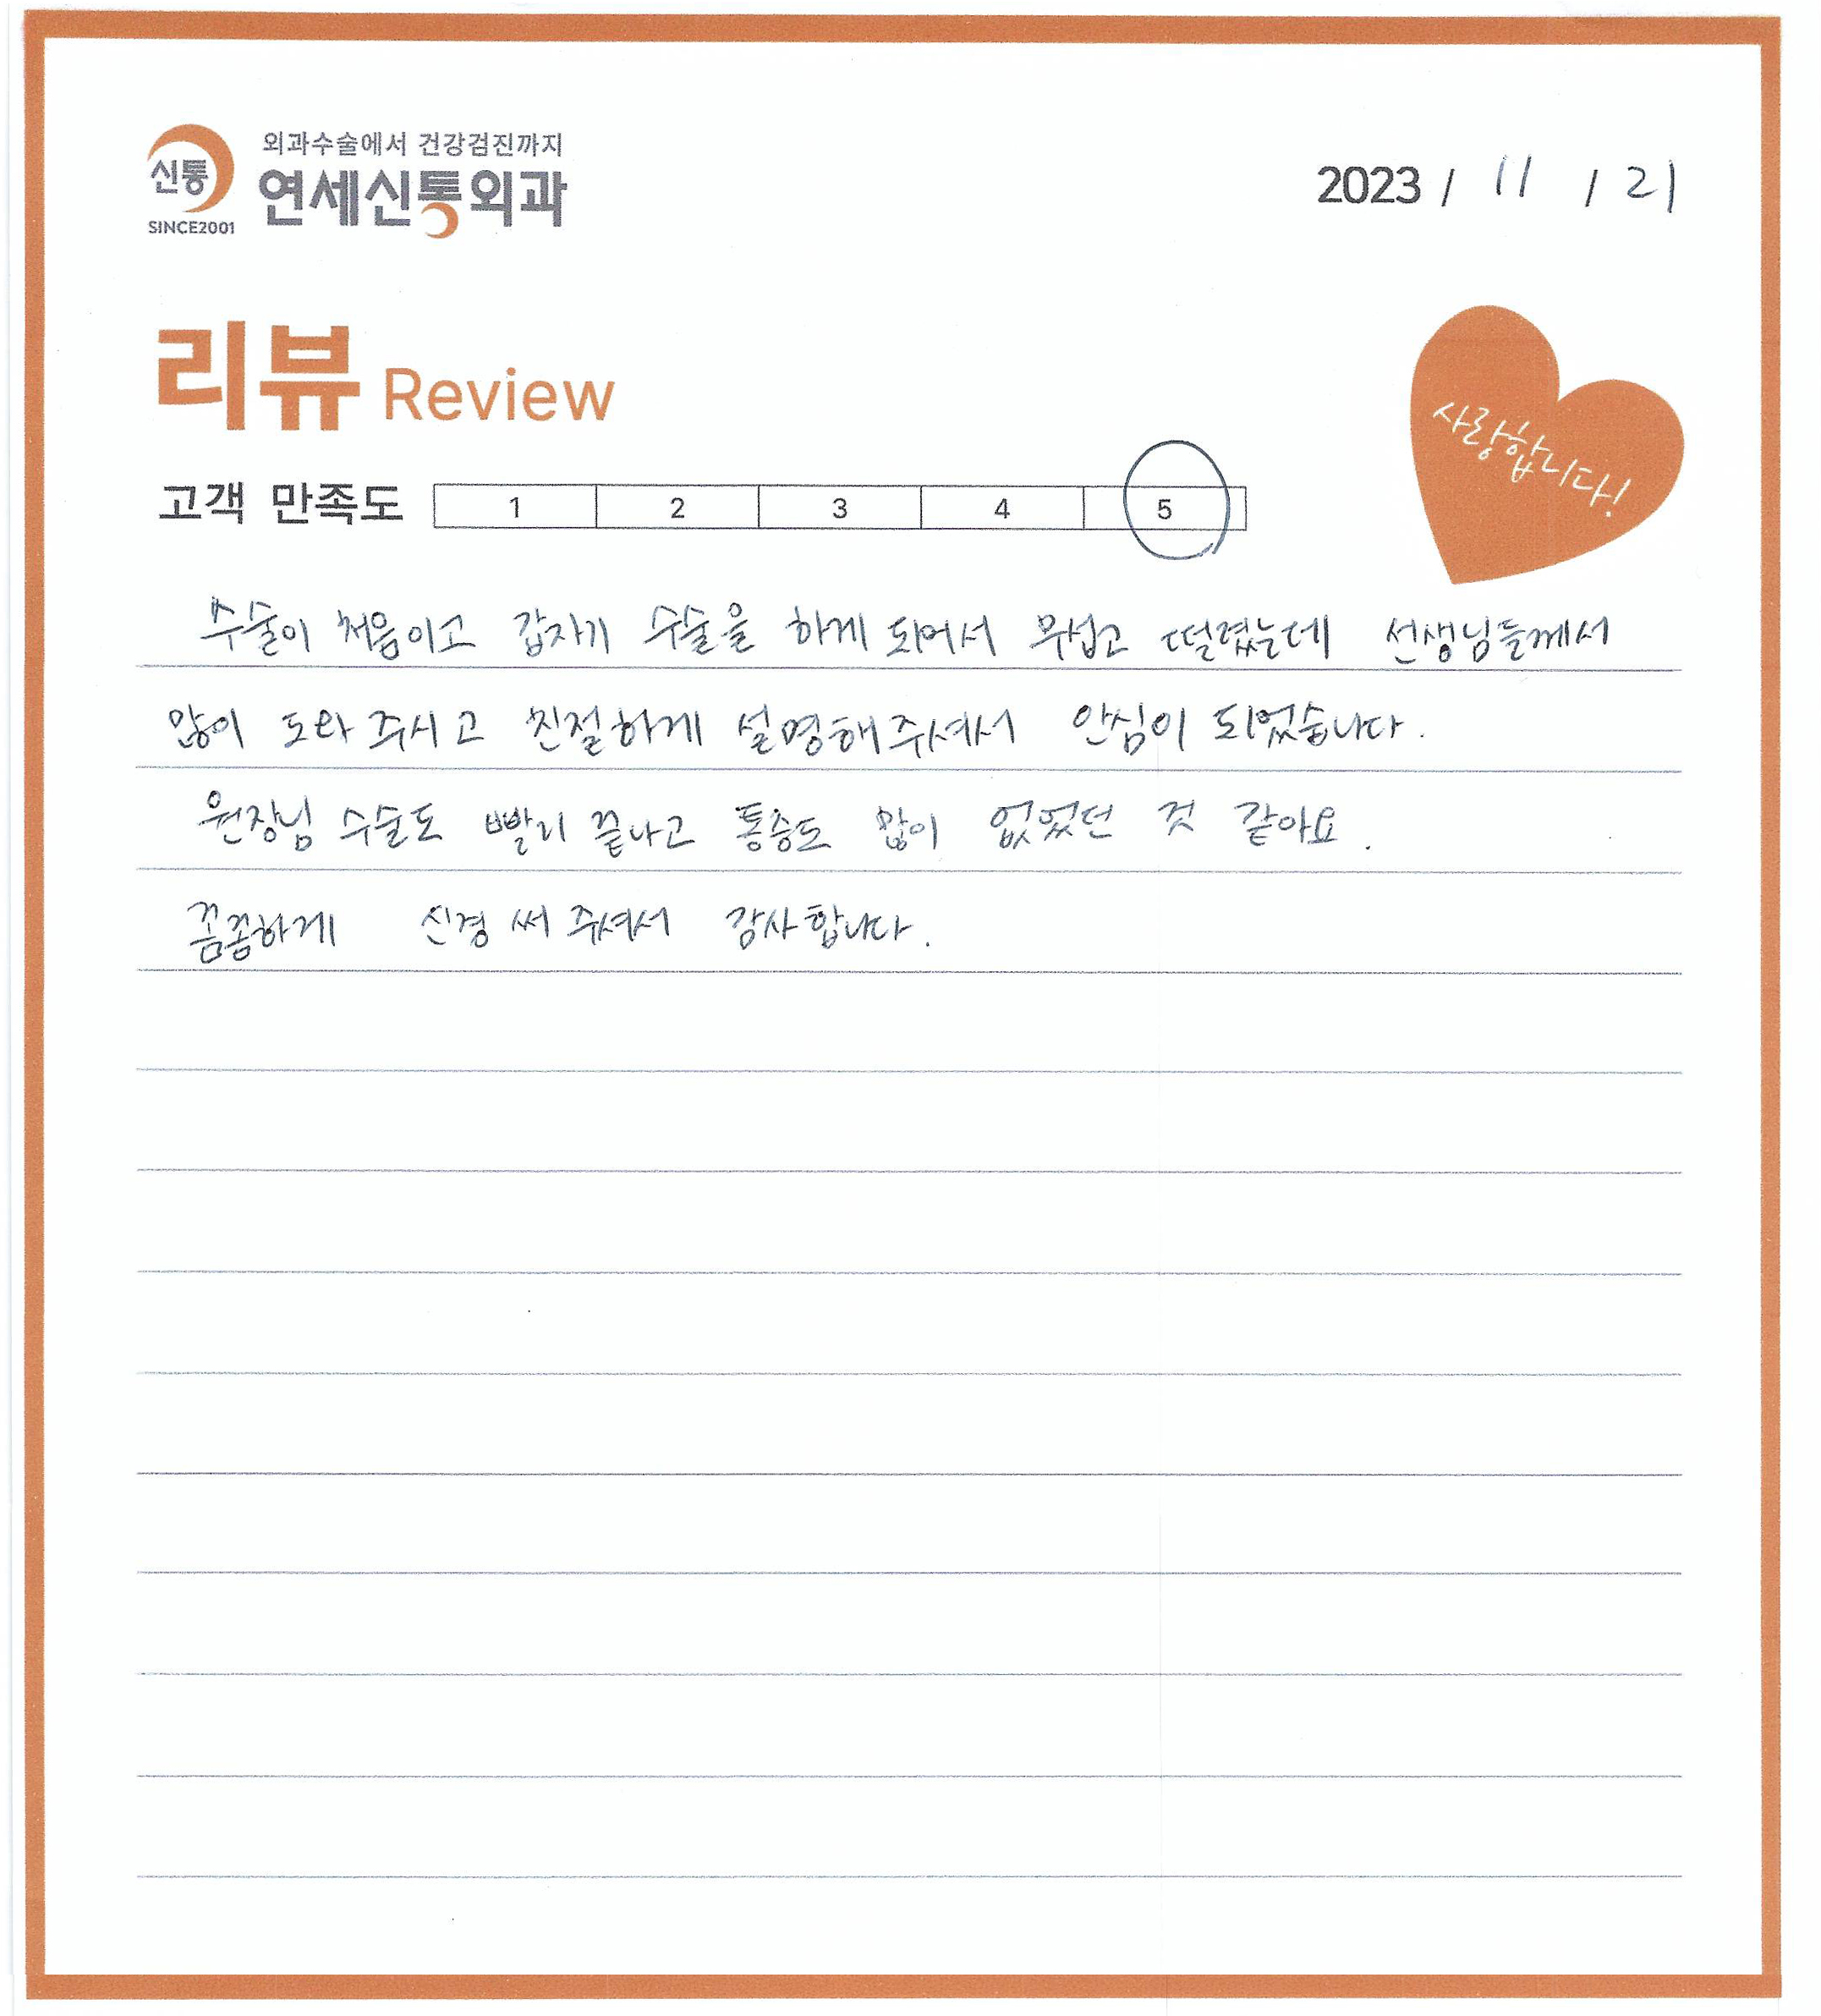 외과수술에서 건강검진까지
신통
연세신통외과
SINCE2001
2023 / 11 / 21
리뷰 Review
사랑합니다!
고객 만족도 1 2 3 4 5
수술이 처음이고 갑자기 수술을 하게 되어서 무섭고 떨렸는데 선생님들께서
많이 도와 주시고 친절하게 설명해주셔서 안심이 되었습니다.
원장님 수술도 빨리 끝나고 통증도 많이 없었던 것 같아요.
꼼꼼하게 신경 써 주셔서 감사합니다.